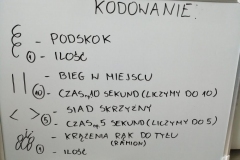 KODOWANIE:
- PODSKOK
① - ILOŚĆ
|| - BIEG W MIEJSCU
⑩ - CZAS, 10 SEKUND (LICZYMY DO 10)
< > - SIAD SKRZYŻNY
⑤ - CZAS, 5 SEKUND (LICZYMY DO 5)
- KRĄŻENIA RĄK DO TYŁU
(RAMION)
① - ILOŚĆ